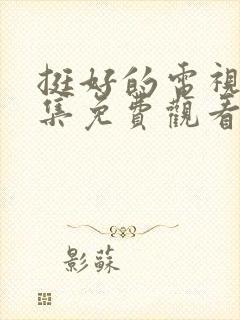 挺好的電視
集免費觀看
影蘇